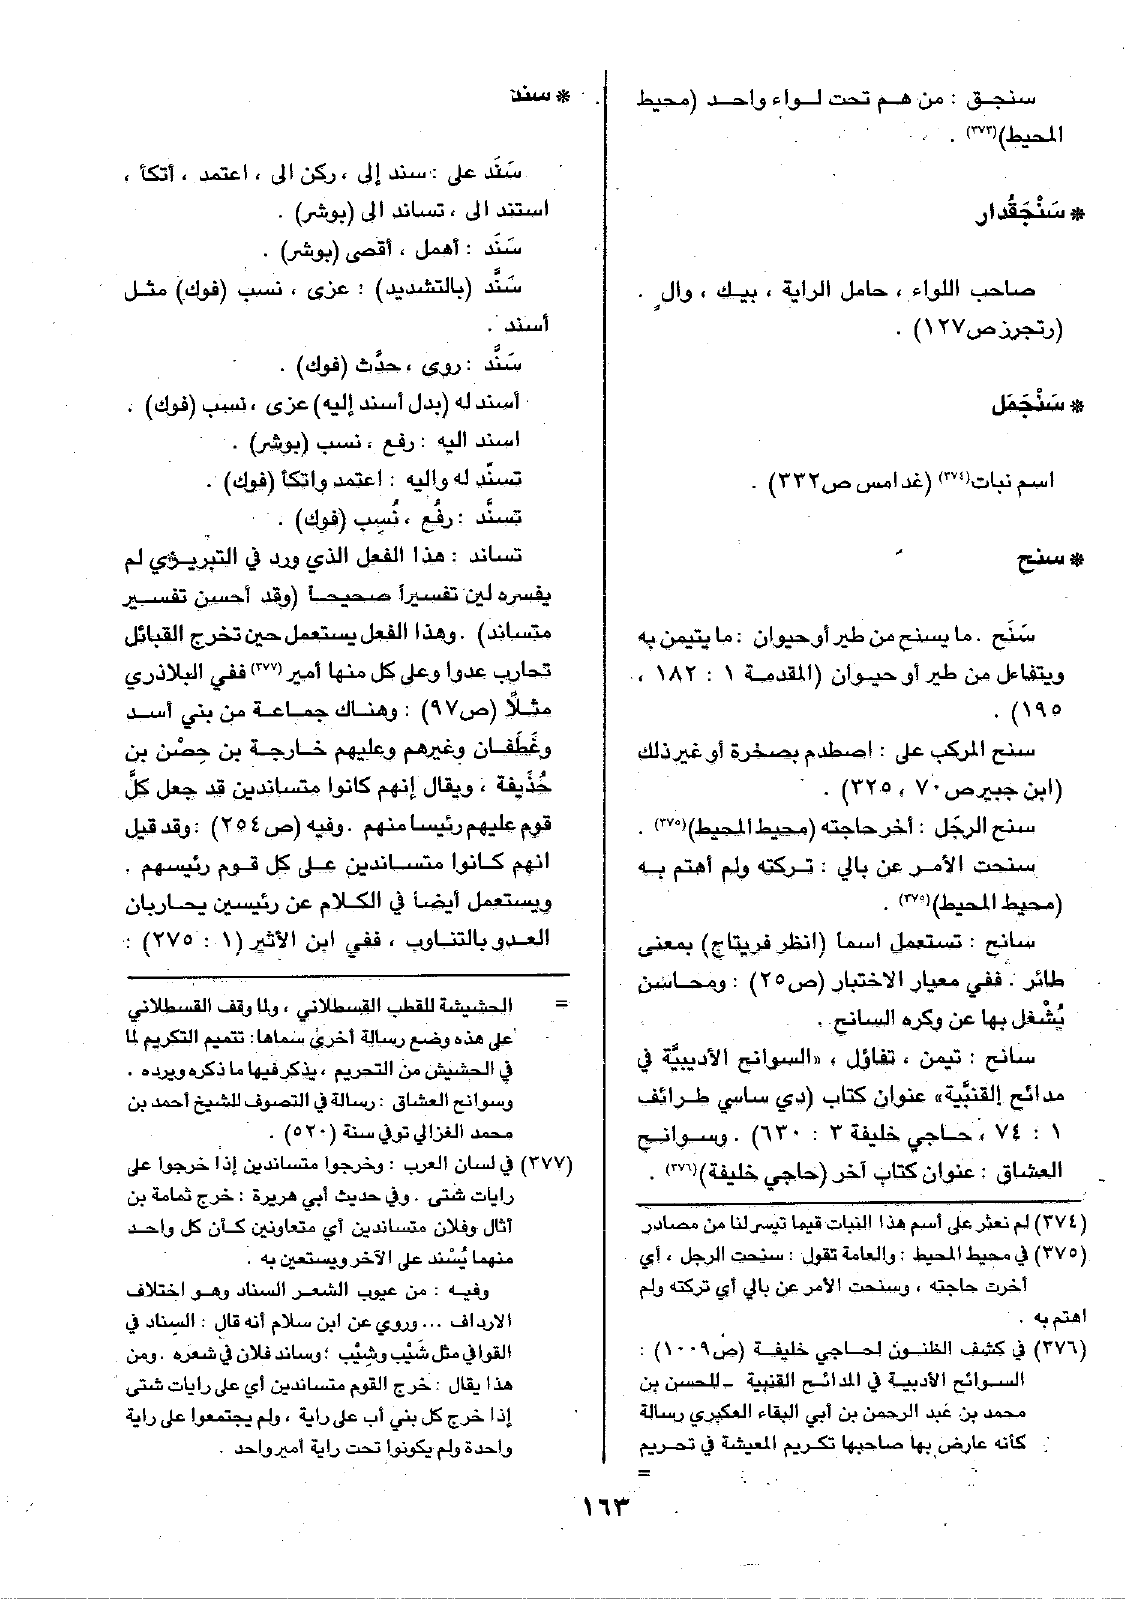 سنجـق : من هـم تحت لـواء واحـد (محيط
المحيط)(٣٧٣) .
* سَنْجَقُدار
صاحب اللواء ، حامل الراية ، بيـك ، والٍ .
(رتجرز ص١٢٧) .
* سَنْجَمَل
اسم نبات(٣٧٤) (غدامس ص٣٣٢) .
* سنح
سَنَح . ما يسنح من طير أو حيوان : ما يتيمن به
ويتفاءل من طير أو حيـوان (المقدمـة ١ : ١٨٢ ،
١٩٥) .
سنح المركب على : اصطدم بصخرة أو غير ذلك
(ابن جبير ص٧٠ ، ٣٢٥) .
سنح الرجُل : أخر حاجته (محيط المحيط)(٣٧٥) .
سنحت الأمـر عن بالي : تـركته ولم أهتم بـه
(محيط المحيط)(٣٧٥) .
سانح : تستعمل اسما (انظر فريتاج) بمعنى
طائر . ففي معيار الاختبار (ص٢٥) : ومحـاسن
يُشْغل بها عن وكره السانح .
سانح : تيمن ، تفاؤل ، «السوانح الأدبيَّة في
مدائح القنبِّية» عنوان كتاب (دي ساسي طرائف
١ : ٧٤ ، حـاجي خليفة ٣ : ٦٣٠) . وسـوانـح
العشاق : عنوان كتاب آخر (حاجي خليفة)(٣٧٦) .
(٣٧٤) لم نعثر على أسم هذا النبات فيما تيسر لنا من مصادر
(٣٧٥) في محيط المحيط : والعامة تقول : سنحت الرجل ، أي
أخرت حاجته ، وسنحت الأمر عن بالي أي تركته ولم
اهتم به .
(٣٧٦) في كشف الظنـون لحـاجي خليفـة (ص١٠٠٩) :
السـوائح الأدبية في المدائـح القنبية ـ للحسن بن
محمد بن عبد الرحمن بن أبي البقاء العكبري رسالة
كأنه عارض بها صاحبها تكريم المعيشة في تحريم
=
* سند
سَنَد على : سند إلى ، ركن الى ، اعتمد ، أتكأ ،
استند الى ، تساند الى (بوشر) .
سَنَد : أهمل ، أقصى (بوشر) .
سَنَّد (بالتشديد) : عزى ، نسب (فوك) مثـل
أسند .
سَنَّد : روى ، حدَّث (فوك) .
أسند له (بدل أسند إليه) عزى ، نسب (فوك) .
اسند اليه : رفع ، نسب (بوشر) .
تسنّد له واليه : اعتمد واتكأ (فوك) .
تسنَّد : رفُع ، نُسِب (فوك) .
تساند : هذا الفعل الذي ورد في التبريـزي لم
يفسره لين تفسيراً صحيحـاً (وقد أحسن تفسـير
متساند) . وهذا الفعل يستعمل حين تخرج القبائل
تحارب عدوا وعلى كل منها أمير(٣٧٧) ففي البلاذري
مثـلاً (ص٩٧) : وهنـاك جمـاعـة من بني أسـد
وغَطَفـان وغيرهم وعليهم خـارجـة بن حِصْن بن
حُذَيفة ، ويقال إنهم كانوا متساندين قد جعل كلَّ
قوم عليهم رئيسا منهم . وفيه (ص٢٥٤) : وقد قيل
انهم كـانوا متسـاندين على كل قـوم رئيسهم .
ويستعمل أيضاً في الكلام عن رئيسين يحـاربان
العدو بالتناوب ، ففي ابن الأثير (١ : ٢٧٥) :
= الحشيشة للقطب القسطلاني ، ولما وقف القسطلاني
على هذه وضع رسالة أخرى سماها: تتميم التكريم لما
في الحشيش من التحريم ، يذكر فيها ما ذكره ويرده .
وسوانح العشاق : رسالة في التصوف للشيخ أحمد بن
محمد الغزالي توفي سنة (٥٢٠) .
(٣٧٧) في لسان العرب : وخرجوا متساندين إذا خرجوا على
رايات شتى . وفي حديث أبي هريرة : خرج ثمامة بن
أثال وفلان متساندين أي متعاونين كـأن كل واحـد
منهما يُسْند على الآخر ويستعين به .
وفيـه : من عيوب الشعـر السناد وهـو اختلاف
الارداف ... وروي عن ابن سلام أنه قال : السناد في
القوافي مثل شَيْب وشِيْب ؛ وساند فلان في شعره . ومن
هذا يقال : خرج القوم متساندين أي على رايات شتى
إذا خرج كل بني أب على راية ، ولم يجتمعوا على راية
واحدة ولم يكونوا تحت راية أمير واحد .
١٦٣